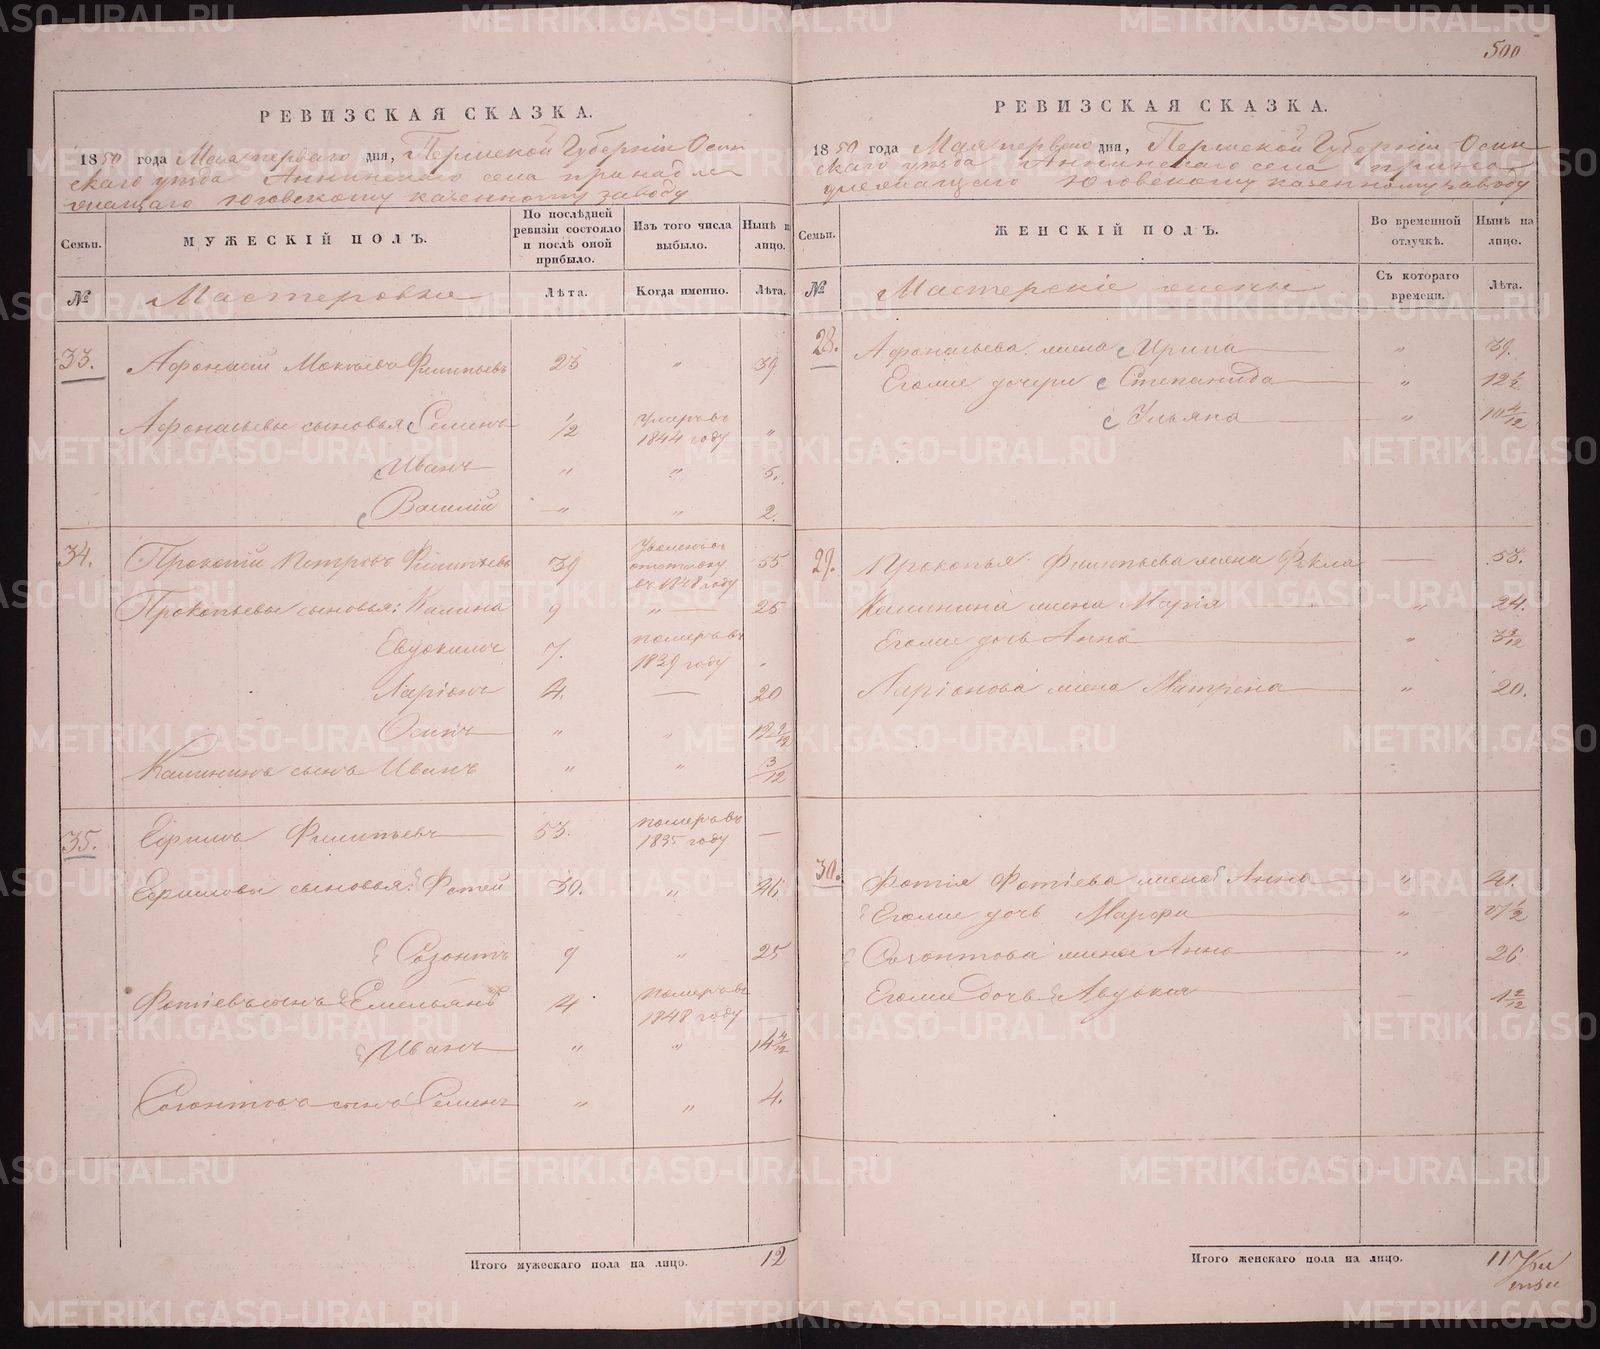 500
РЕВИЗСКАЯ СКАЗКА.
1850 года Мая перваго дня, Пермской Губерніи Осин
скаго уѣзда Аннинскаго села принадле
жащаго Юговскому казенному заводу
Семьи.
МУЖЕСКІЙ ПОЛЪ.
По послѣдней ревизіи состояло и послѣ оной прибыло.
Изъ того числа выбыло.
Нынѣ на лицо.
№
Мастеровые
Лѣта.
Когда именно.
Лѣта.
33. Афонасій Мокѣевъ Филипьевъ 23 " 39
Афонасьевы сыновья Семенъ 1/2 умеръ въ 1844 году "
Иванъ " " 5.
Василій " " 2.
34. Прокопій Петровъ Филипьевъ 39 въ 1848 году 55
Прокопьевы сыновья: Калина 9 " 25
Евдокимъ 7. померъ въ 1839 году
Ларіонъ 4. — 20
Осипъ " " 12 9/12
Калининъ сынъ Иванъ " " 3/12
35. Ефимъ Филипьевъ 53. померъ въ 1835 году —
Ефимовы сыновья: Фотей 30. " 46.
Созонтъ 9 " 25
Фотіевъ сынъ Емельянъ 4 померъ въ 1848 году —
Иванъ " " 14 4/12
Созонтовъ сынъ Семенъ " " 4.
Итого мужескаго пола на лицо. 12
РЕВИЗСКАЯ СКАЗКА.
1850 года Мая перваго дня, Пермской Губерніи Осин
скаго уѣзда Аннинскаго села прина
длежащаго Юговскому казенному заводу
Семьи.
ЖЕНСКІЙ ПОЛЪ.
Во временной отлучкѣ.
Нынѣ на лицо.
№
Мастерскіе жены
Съ котораго времени.
Лѣта.
28. Афонасьева жена Ирина " 39.
Егоже дочери Степанида " 12 1/2
Ульяна " 10 4/12
29. Прокопья Филипьева жена Фекла — 53.
Калинина жена Марія " 24.
Егоже дочь Анна " 3 2/12
Ларіонова жена Матрена " 20.
30. Фотія Фотіева жена Анна " 41.
Егоже дочь Марфа "
Созонтова жена Анна " 26
Егоже дочь Авдокия 1 2/12
Итого женскаго пола на лицо. 11
METRIKI.GASO-URAL.RU